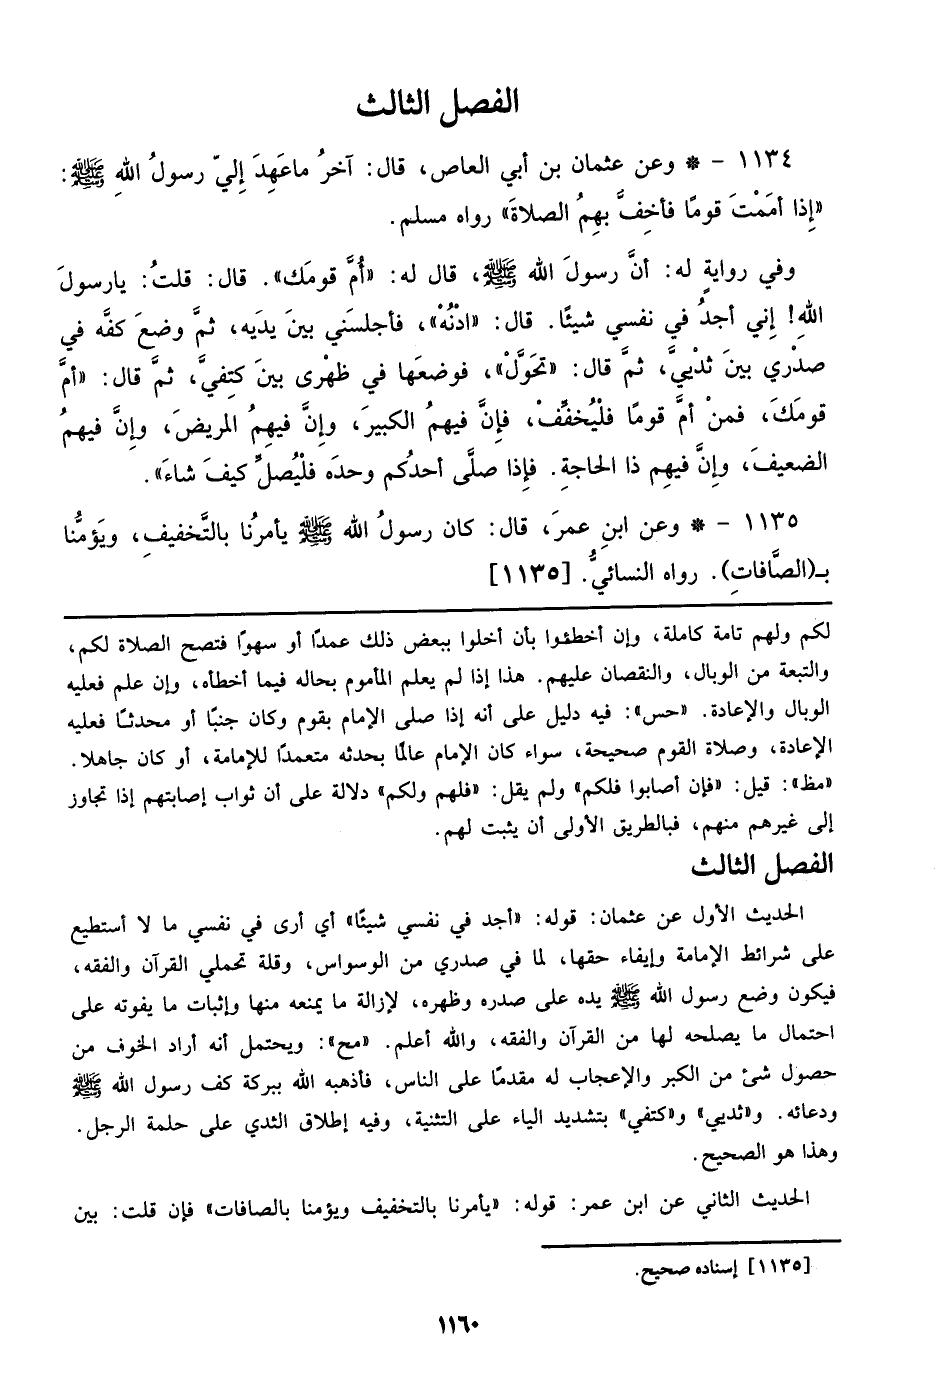 الفصل الثالث
١١٣٤ – * وعن عثمان بن أبي العاص، قال: آخرُ ماعَهِدَ إليّ رسولُ اللهِ ﷺ:
«إِذا أمَمْتَ قومًا فأخِفَّ بهِمُ الصلاةَ» رواه مسلم.
وفي روايةٍ له: أنَّ رسولَ الله ﷺ، قال له: «أُمَّ قومَك». قال: قلتُ: يارسولَ
اللهِ! إني أجدُ في نفسي شيئًا. قال: «ادْنُهْ»، فأجلسَني بينَ يدَيه، ثمَّ وضعَ كفَّه في
صدْري بينَ ثدْييَّ، ثمَّ قال: «تحَوَّلْ»، فوضعَها في ظهْرى بينَ كتِفيَّ، ثمَّ قال: «أمَّ
قومَكَ، فمنْ أمَّ قومًا فلْيُخفِّفْ، فإنَّ فيهمُ الكبيرَ، وإنَّ فيهِمُ المريضَ، وإنَّ فيهمُ
الضعيفَ، وإنَّ فيهِم ذا الحاجةِ. فإذا صلَّى أحدُكم وحدَه فلْيُصلِّ كيفَ شاءَ».
١١٣٥ – * وعن ابنِ عمرَ، قال: كان رسولُ الله ﷺ يأمرُنا بالتَّخفيفِ، ويَؤمُّنا
بـ(الصَّافاتِ). رواه النسائيُّ. [١١٣٥]
لكم ولهم تامة كاملة، وإن أخطئوا بأن أخلوا ببعض ذلك عمدًا أو سهوًا فتصح الصلاة لكم،
والتبعة من الوبال، والنقصان عليهم. هذا إذا لم يعلم المأموم بحاله فيما أخطأه، وإن علم فعليه
الوبال والإعادة. «حس»: فيه دليل على أنه إذا صلى الإمام بقوم وكان جنبًا أو محدثًا فعليه
الإعادة، وصلاة القوم صحيحة، سواء كان الإمام عالمًا بحدثه متعمدًا للإمامة، أو كان جاهلا.
«مظ»: قيل: «فإن أصابوا فلكم» ولم يقل: «فلهم ولكم» دلالة على أن ثواب إصابتهم إذا تجاوز
إلى غيرهم منهم، فبالطريق الأولى أن يثبت لهم.
الفصل الثالث
الحديث الأول عن عثمان: قوله: «أجد في نفسي شيئًا» أي أرى في نفسي ما لا أستطيع
على شرائط الإمامة وإيفاء حقها، لما في صدري من الوسواس، وقلة تحملي القرآن والفقه،
فيكون وضع رسول الله ﷺ يده على صدره وظهره، لإزالة ما يمنعه منها وإثبات ما يفوته على
احتمال ما يصلحه لها من القرآن والفقه، والله أعلم. «مح»: ويحتمل أنه أراد الخوف من
حصول شئ من الكبر والإعجاب له مقدمًا على الناس، فأذهبه الله ببركة كف رسول الله ﷺ
ودعائه. و«ثديي» و«كتفي» بتشديد الياء على التثنية، وفيه إطلاق الثدي على حلمة الرجل.
وهذا هو الصحيح.
الحديث الثاني عن ابن عمر: قوله: «يأمرنا بالتخفيف ويؤمنا بالصافات» فإن قلت: بين
[١١٣٥] إسناده صحيح.
١١٦٠